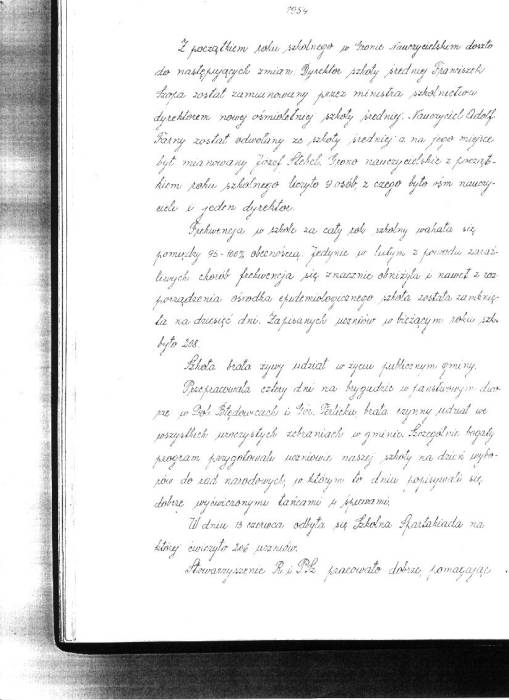 1954
Z początkiem roku szkolnego w Gronie Nauczycielskim doszło
do następujących zmian. Dyrektor szkoły średniej Franciszek
Szopa został zamianowany przez ministra szkolnictwa
dyrektorem nowej ośmioletniej szkoły średniej. Nauczyciel Adolf
Farny został odwołany ze szkoły średniej a na jego miejsce
był mianowany Józef Stebel. Grono nauczycielskie z począt-
kiem roku szkolnego liczyło 9 osób, z czego było ośm nauczy-
cieli i jeden dyrektor.
Frekwencja w szkole za cały rok szkolny wahała się
pomiędzy 95-100% obecnością. Jedynie w lutym z powodu zaraź-
liwych chorób frekwencja się znacznie obniżyła i nawet z roz
porządzenia ośrodka epidemiologicznego szkoła została zamknię-
ta na dziesięć dni. Zapisanych uczniów w bieżącym roku szk.
było 208.
Szkoła brała żywy udział w życiu publicznym gminy.
Przepracowała cztery dni na brygadzie w państwowym dwo
rze w Doł. Błędowicach i Gór. Terlicku, brała czynny udział we
wszystkich uroczystych zebraniach w gminie. Szczególnie bogaty
program przygotowali uczniowie naszej szkoły na dzień wybo-
rów do rad narodowych, w którym to dniu popisywali się,
dobrze wyćwiczonymi tańcami i śpiewami.
W dniu 13 czerwca odbyła się Szkolna Spartakiada na
której ćwiczyło 206 uczniów.
Stowarzyszenie R. i PSz pracowało dobrze, pomagając